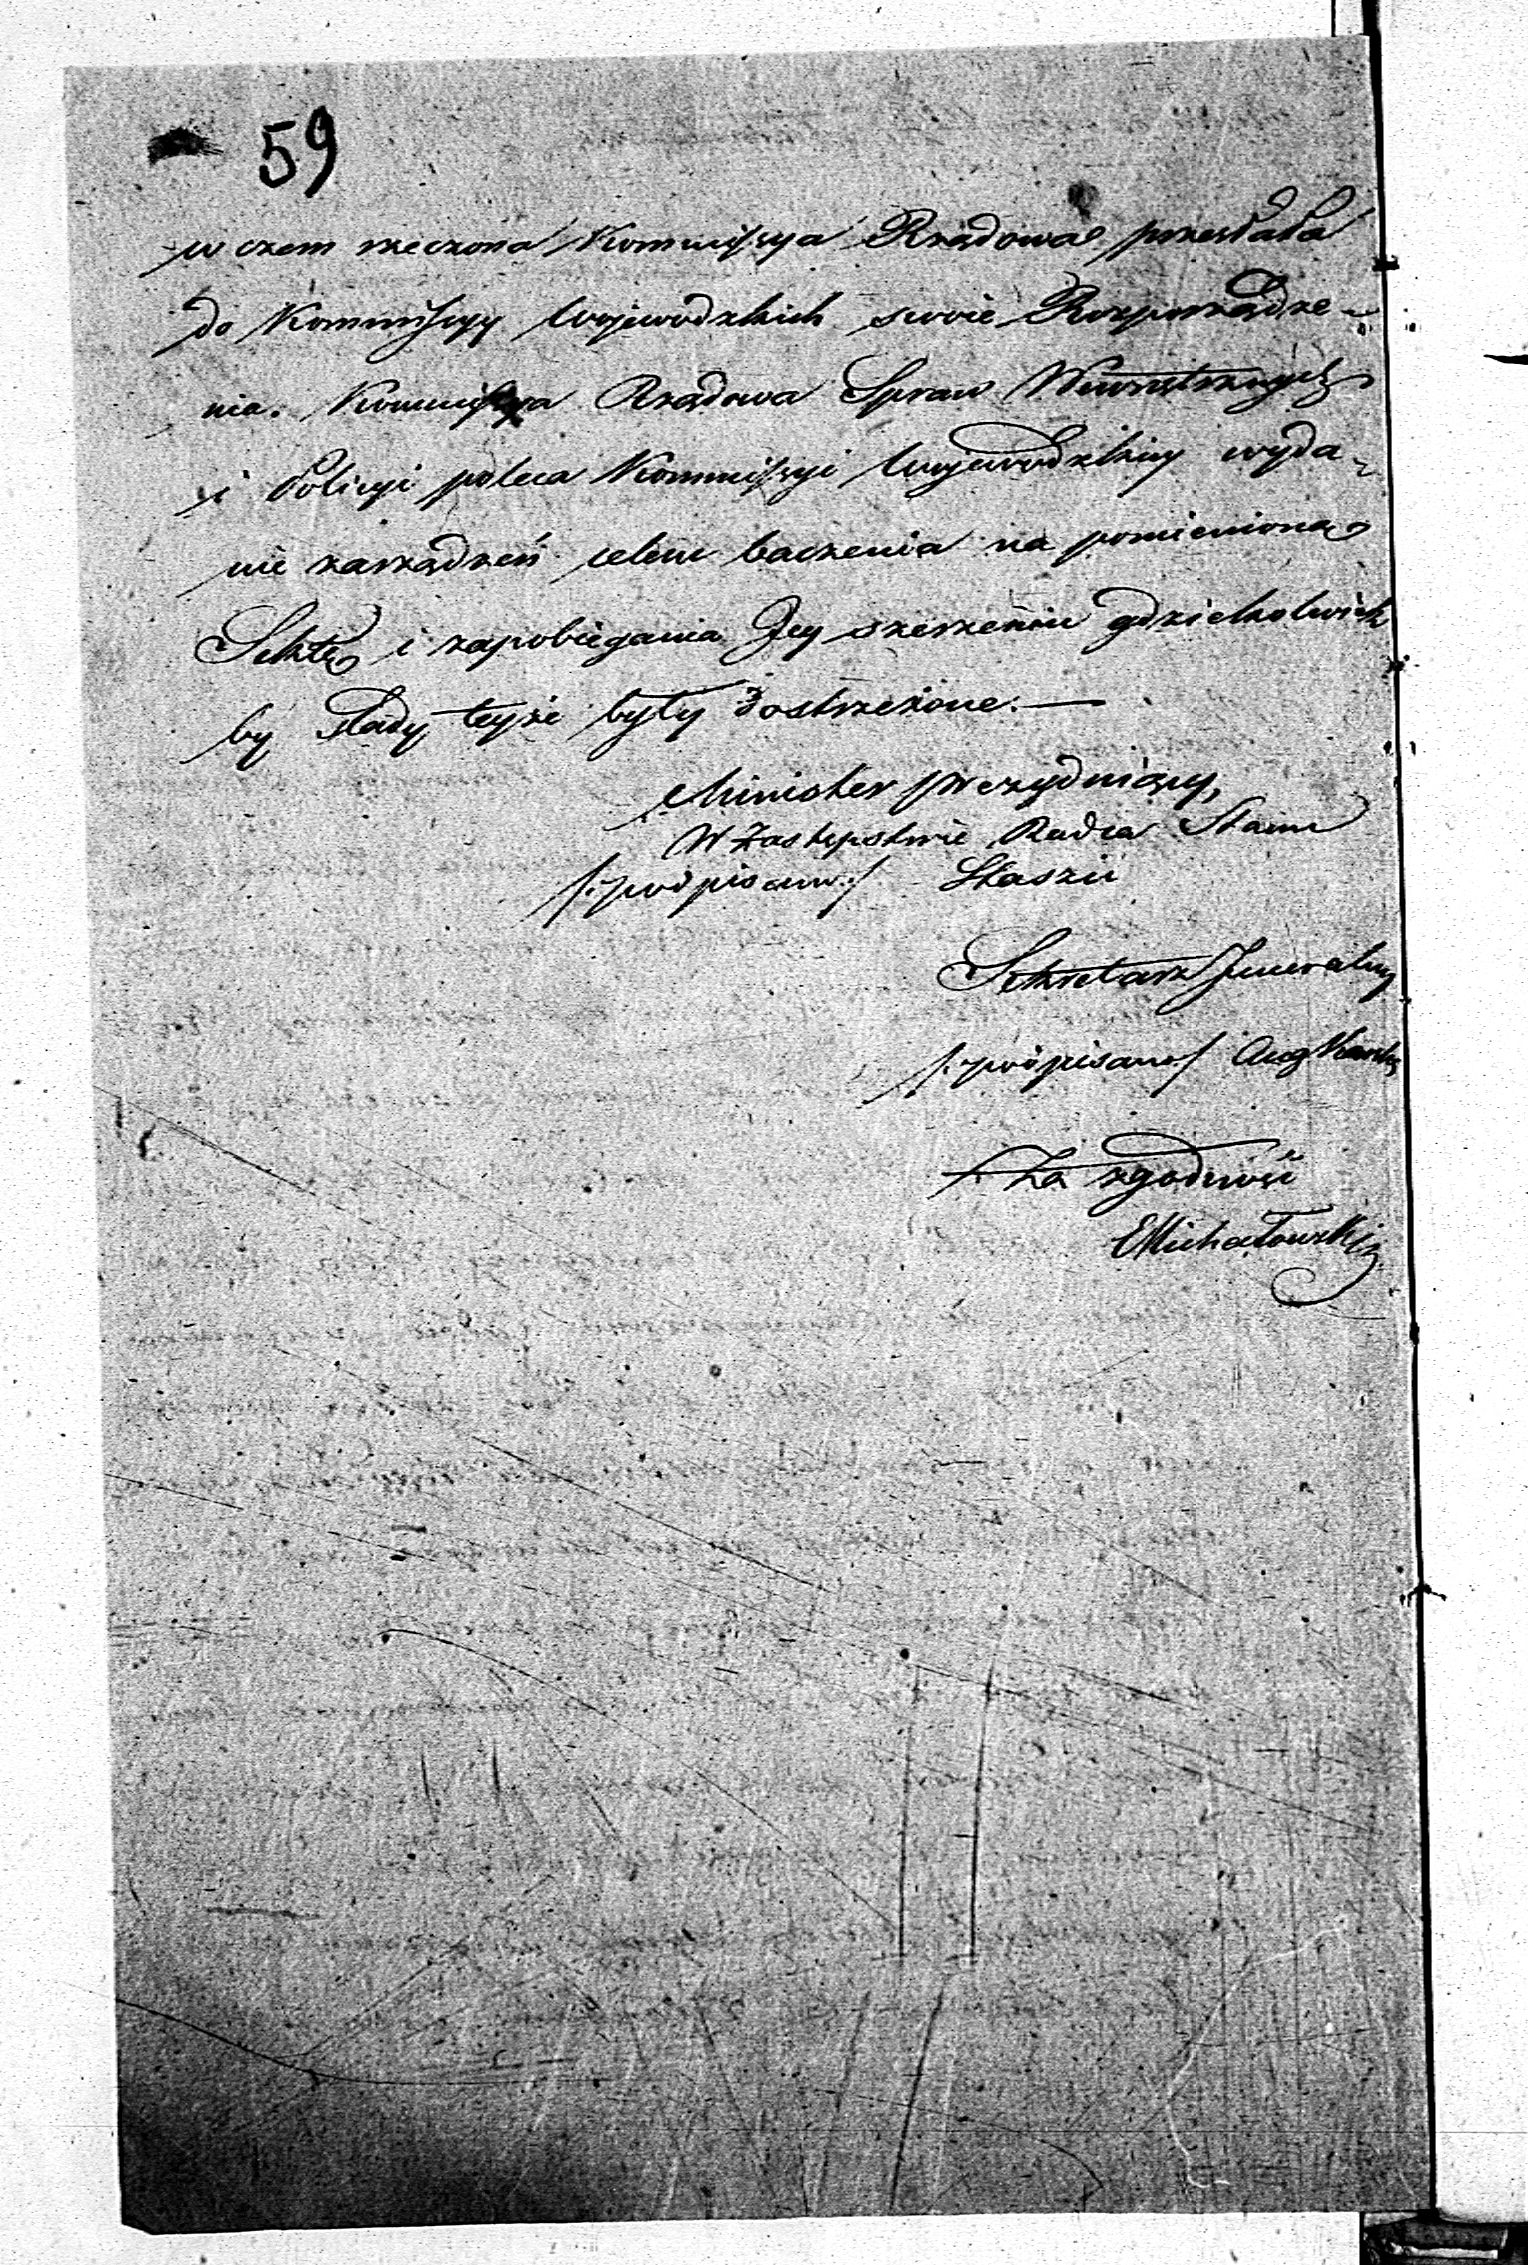 59
w czem rzeczona Kommissya Rządowa przesłała
do Kommissyy Woiewodzkich swoie Rozporządze-
nia. Kommissya Rządowa Spraw Wewnętrznych
i Policyi poleca Kommissyi Woiewodzkiey wyda-
nie zarządzeń celem baczenia na pomienioną
Sektę i zapobiegania Jey szerzeniu gdziekolwiek
by ślady teyże były dostrzeżone. —
Minister Prezyduiący,
W Zastępstwie Radca Stanu
/:podpisano:/ Staszic
Sekretarz Jeneralny
/:podpisano:/ Aug Karski
Za zgodność
Michałowski